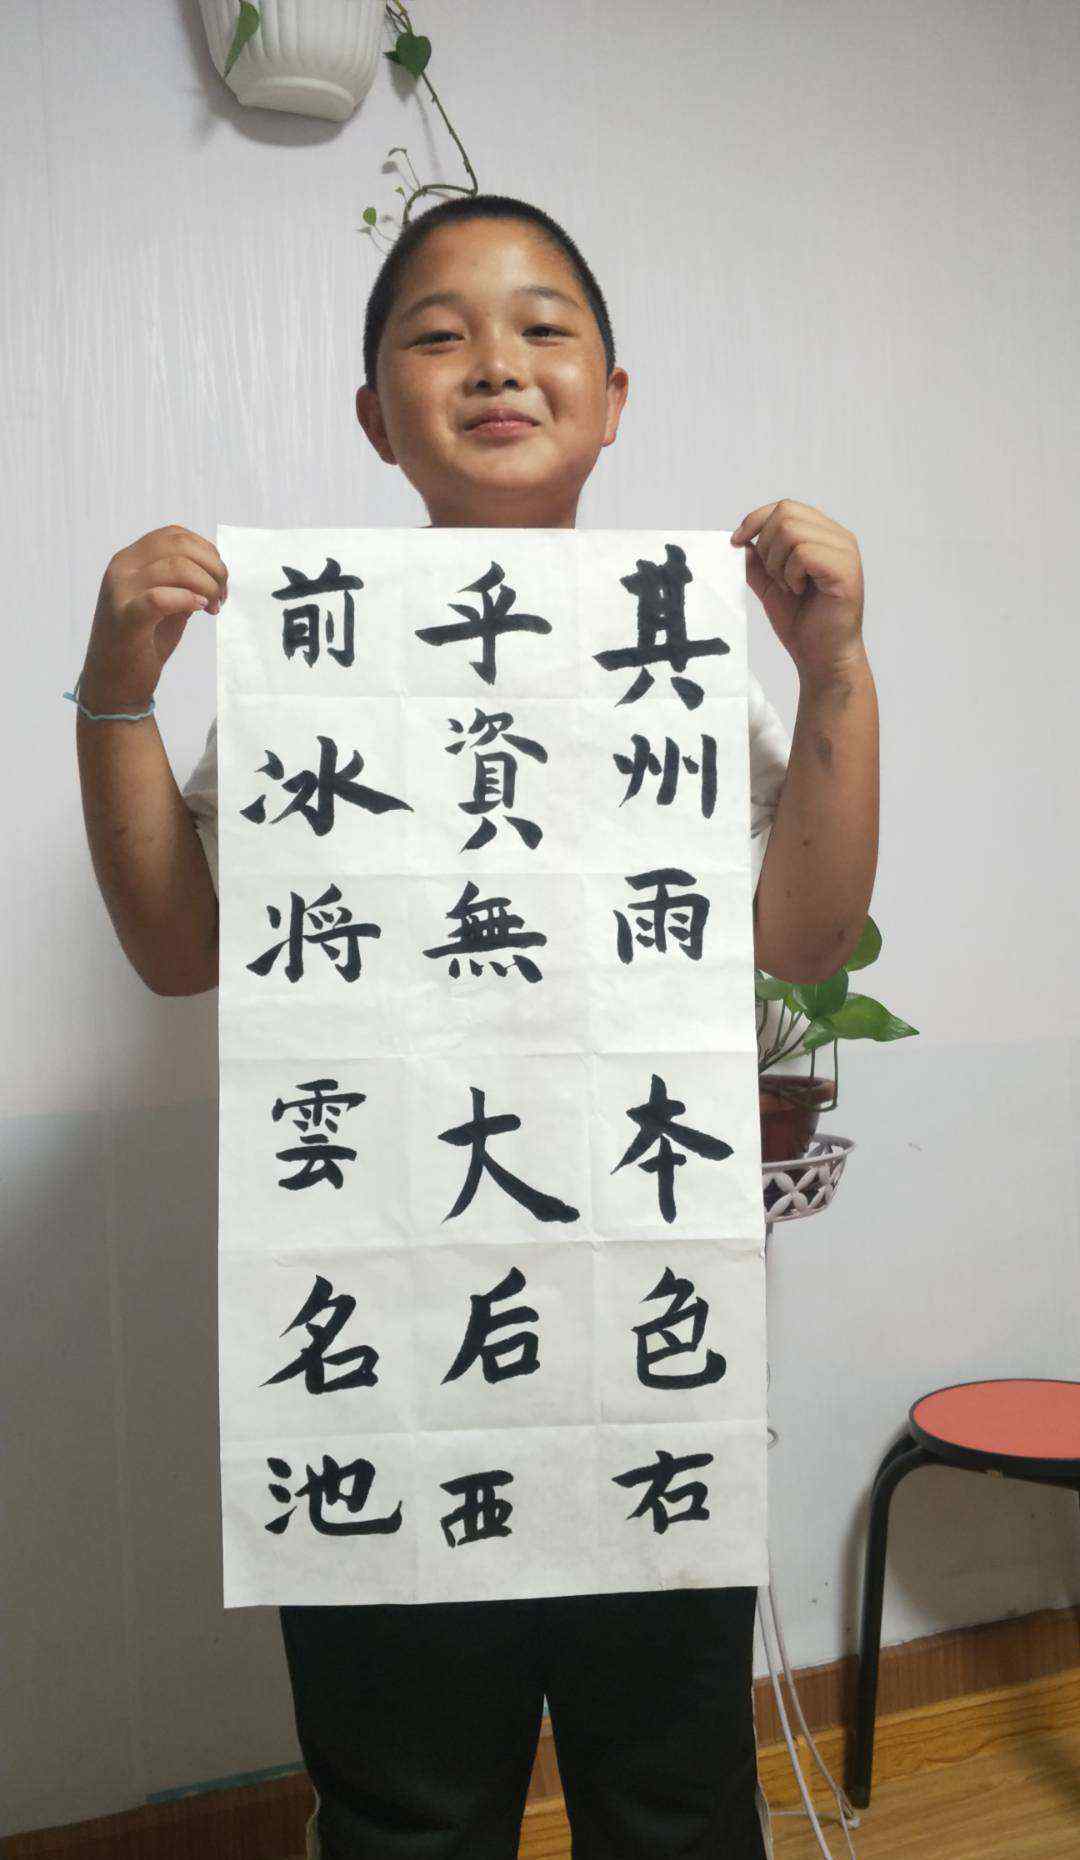 其州雨本色右
乎資無大后西
前冰将雲名池